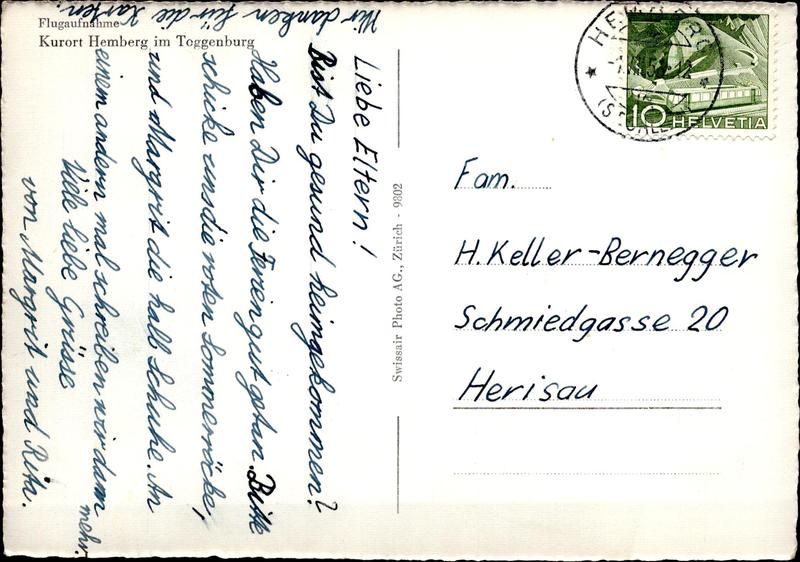 Flugaufnahme
Kurort Hemberg im Toggenburg
Wir danken für die Karten.
Liebe Eltern!
Bist Du gesund heimgekommen?
Haben Dir die Ferien gut getan. Bitte
schicke uns die roten Sommerröcke,
und Margrit die halb Schuhe. An
einem andern mal schreiben wir dann
mehr.
Viele liebe Grüsse
von Margrit und Rita.
Swissair Photo AG., Zürich - 9802
HEMBERG
10 HELVETIA
Fam.
H. Keller-Bernegger
Schmiedgasse 20
Herisau